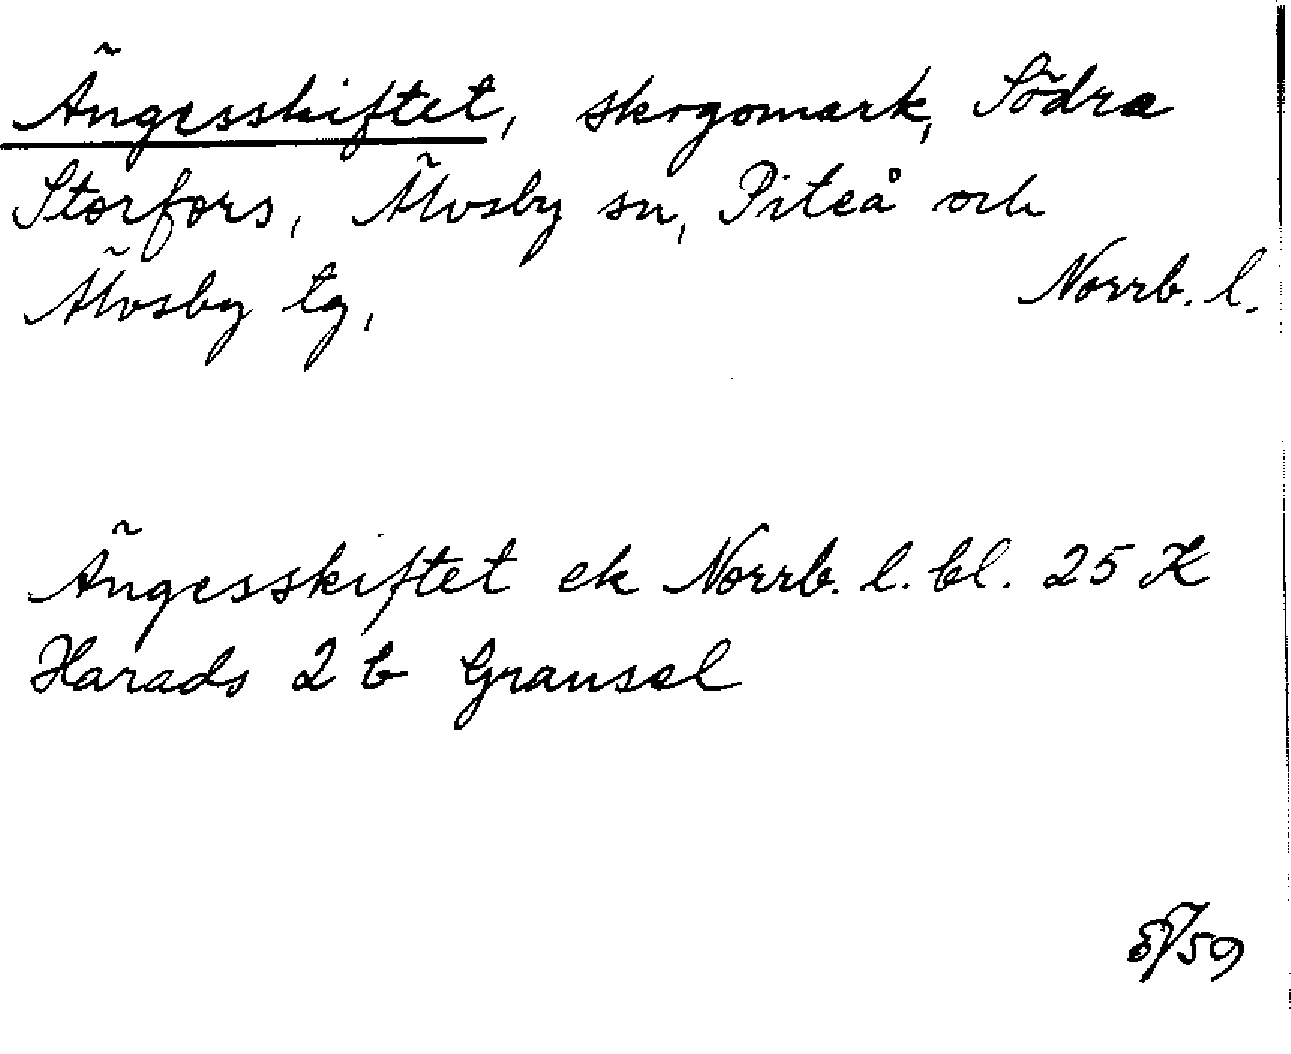 Ängesskiftet, skogsmark, Södra
Storfors, Älvsby sn, Piteå och
Älvsby tg, Norrb. l.
Ängesskiftet ek Norrb. l. bl. 25 K
Harads 2 b Gransel
/59